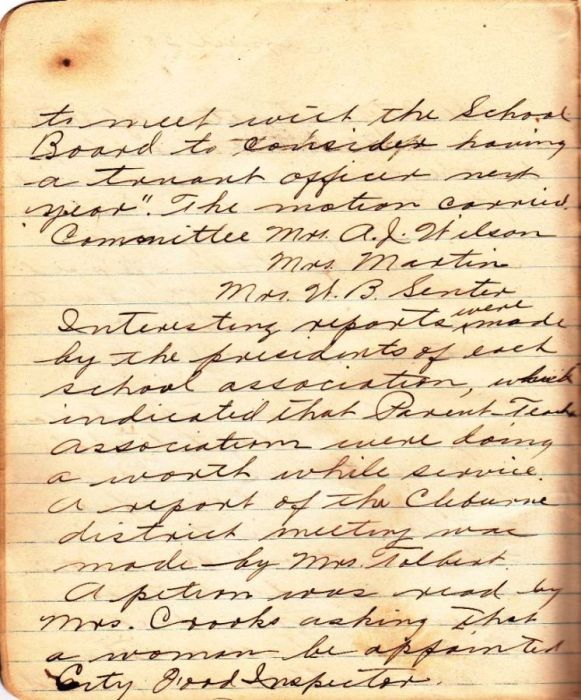 to meet wict the School
Board to consider having
a truant officer next
year". The motion carried.
Committee Mrs. A. J. Wilson
Mrs. Martin
Mrs. W. B. Senter
Interesting reports were made
by the presidents of each
school association, which
indicated that Parent-Teach
Association were doing
a worth while service.
A report of the Cleburne
district meeting was
made by Mrs. Tolbert.
A petion was read by
Mrs. Crooks asking that
a woman be appointed
City Food Inspector.